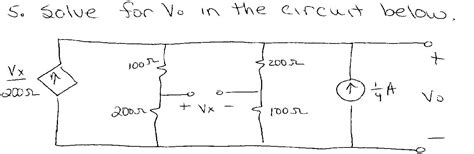 5. Solve for Vo in the circuit below.
100Ω 200Ω +
Vx
200Ω ↑ ↑ 1/4 A Vo
200Ω + Vx - 100Ω
-